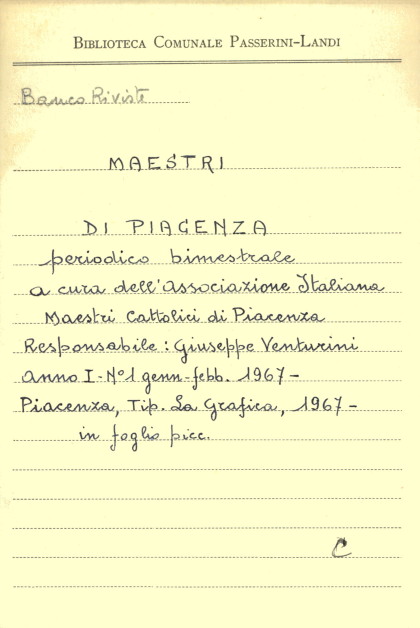 BIBLIOTECA COMUNALE PASSERINI-LANDI
Banco Riviste
MAESTRI
DI PIACENZA
periodico bimestrale
a cura dell'Associazione Italiana
Maestri Cattolici di Piacenza
Responsabile: Giuseppe Venturini
anno I-N°1 genn-febb. 1967-
Piacenza, Tip. La Grafica, 1967-
in foglio picc.
C